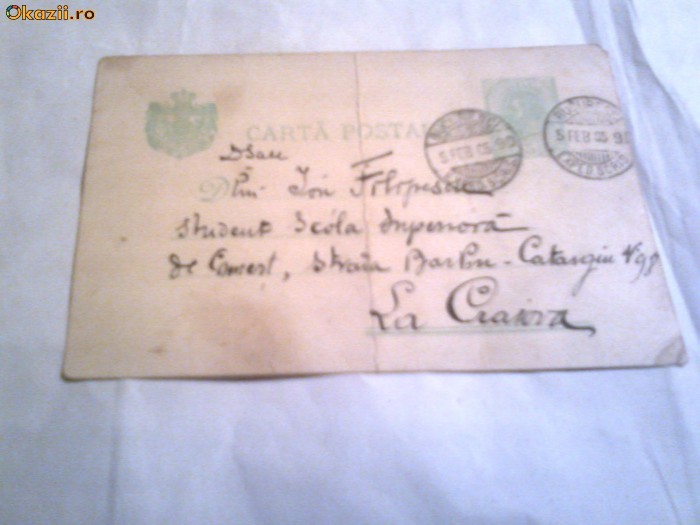 Okazii.ro
CARTĂ POSTAL
5 FEB 05
5 FEB 05
Dsale
Dlui Ion Filipescu
student Scóla Superioră
de Comerț, Strada Barbu-Catargiu
La Craiova